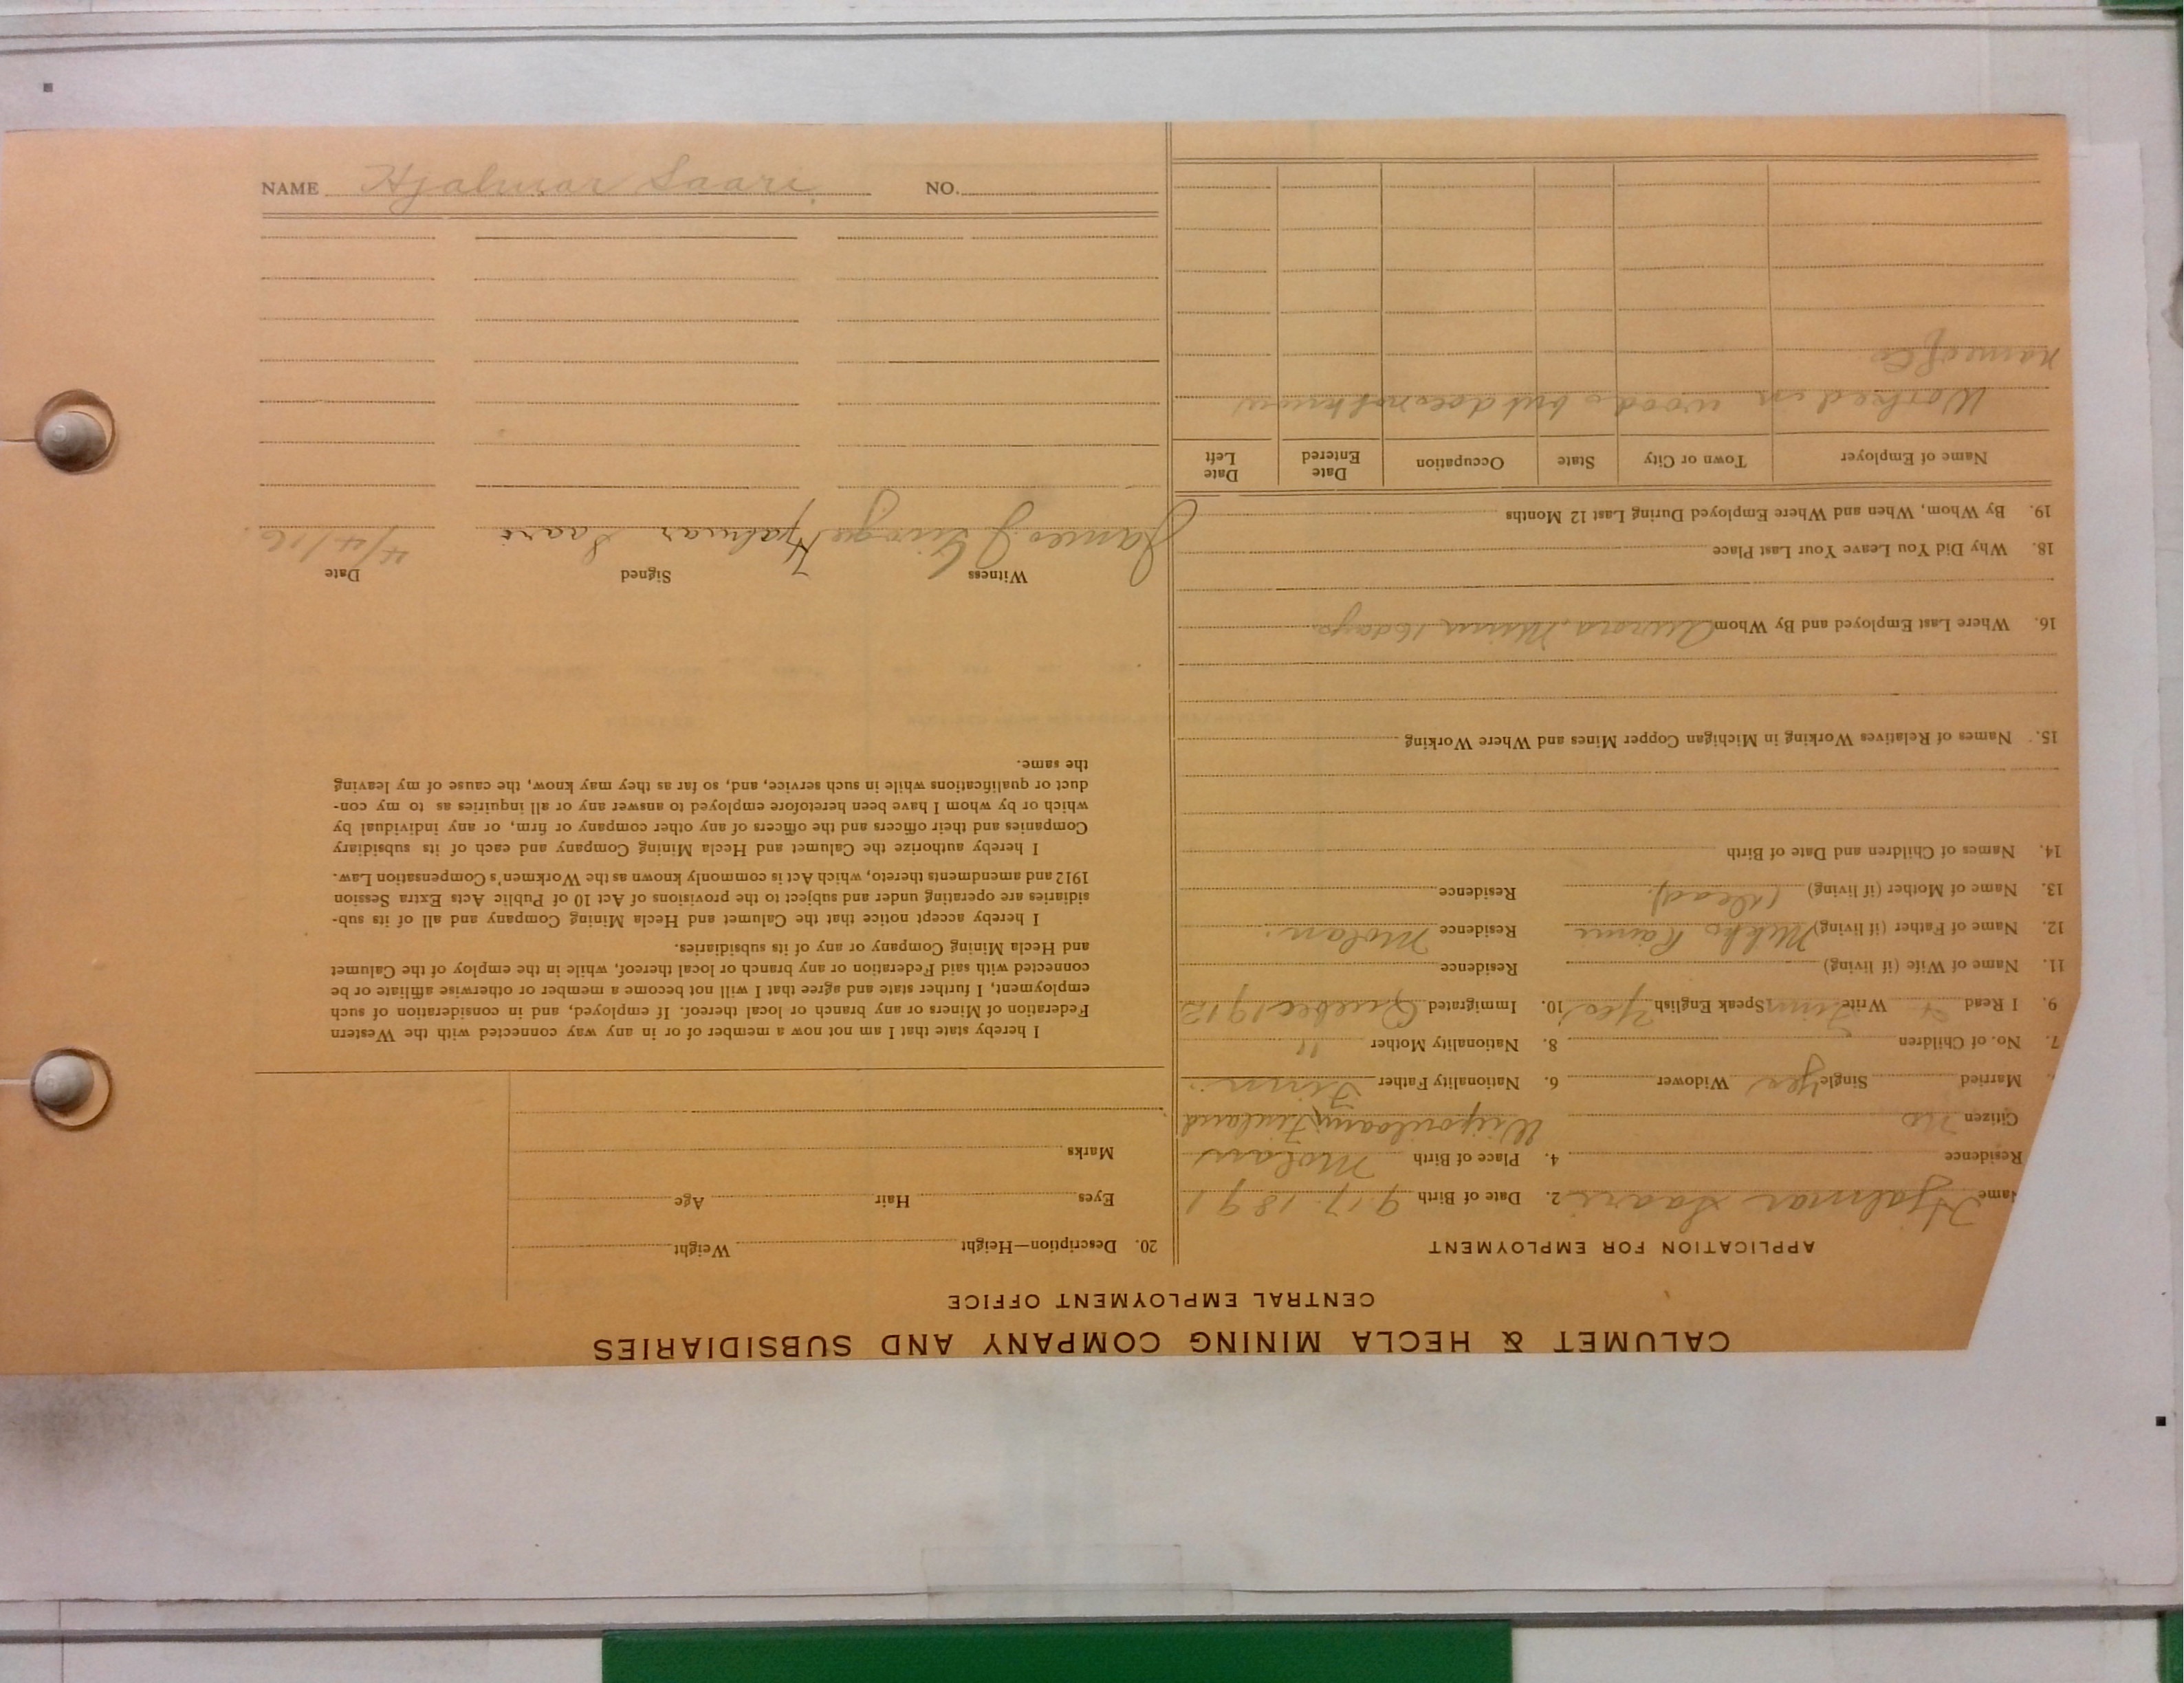 NAME Hjalmar Saari NO.
CALUMET & HECLA MINING COMPANY AND SUBSIDIARIES
CENTRAL EMPLOYMENT OFFICE
APPLICATION FOR EMPLOYMENT
ame Hjalmar Saari 2. Date of Birth 9-17-1891
Residence 4. Place of Birth Molars
Citizen No Finland
Married Single Yes Widower 6. Nationality Father Finn
7. No. of Children 8. Nationality Mother "
9. I Read Write Finn Speak English Yes 10. Immigrated Quebec 1912
11. Name of Wife (if living) Residence
12. Name of Father (if living) Mikko Residence Molars
13. Name of Mother (if living) Dead Residence
14. Names of Children and Date of Birth
15. Names of Relatives Working in Michigan Copper Mines and Where Working
16. Where Last Employed and By Whom Aurora, Minn 16 days
18. Why Did You Leave Your Last Place
19. By Whom, When and Where Employed During Last 12 Months
Name of Employer Town or City State Occupation Date Entered Date Left
Worked in woods but does not know
name of Co.
20. Description—Height Weight
Eyes Hair Age
Marks
I hereby state that I am not now a member of or in any way connected with the Western
Federation of Miners or any branch or local thereof. If employed, and in consideration of such
employment, I further state and agree that I will not become a member or otherwise affiliate or be
connected with said Federation or any branch or local thereof, while in the employ of the Calumet
and Hecla Mining Company or any of its subsidiaries.
I hereby accept notice that the Calumet and Hecla Mining Company and all of its sub-
sidiaries are operating under and subject to the provisions of Act 10 of Public Acts Extra Session
1912 and amendments thereto, which Act is commonly known as the Workmen's Compensation Law.
I hereby authorize the Calumet and Hecla Mining Company and each of its subsidiary
Companies and their officers and the officers of any other company or firm, or any individual by
which or by whom I have been heretofore employed to answer any or all inquiries as to my con-
duct or qualifications while in such service, and, so far as they may know, the cause of my leaving
the same.
Witness Signed Date
James J George Hjalmar Saari 4/4/16.